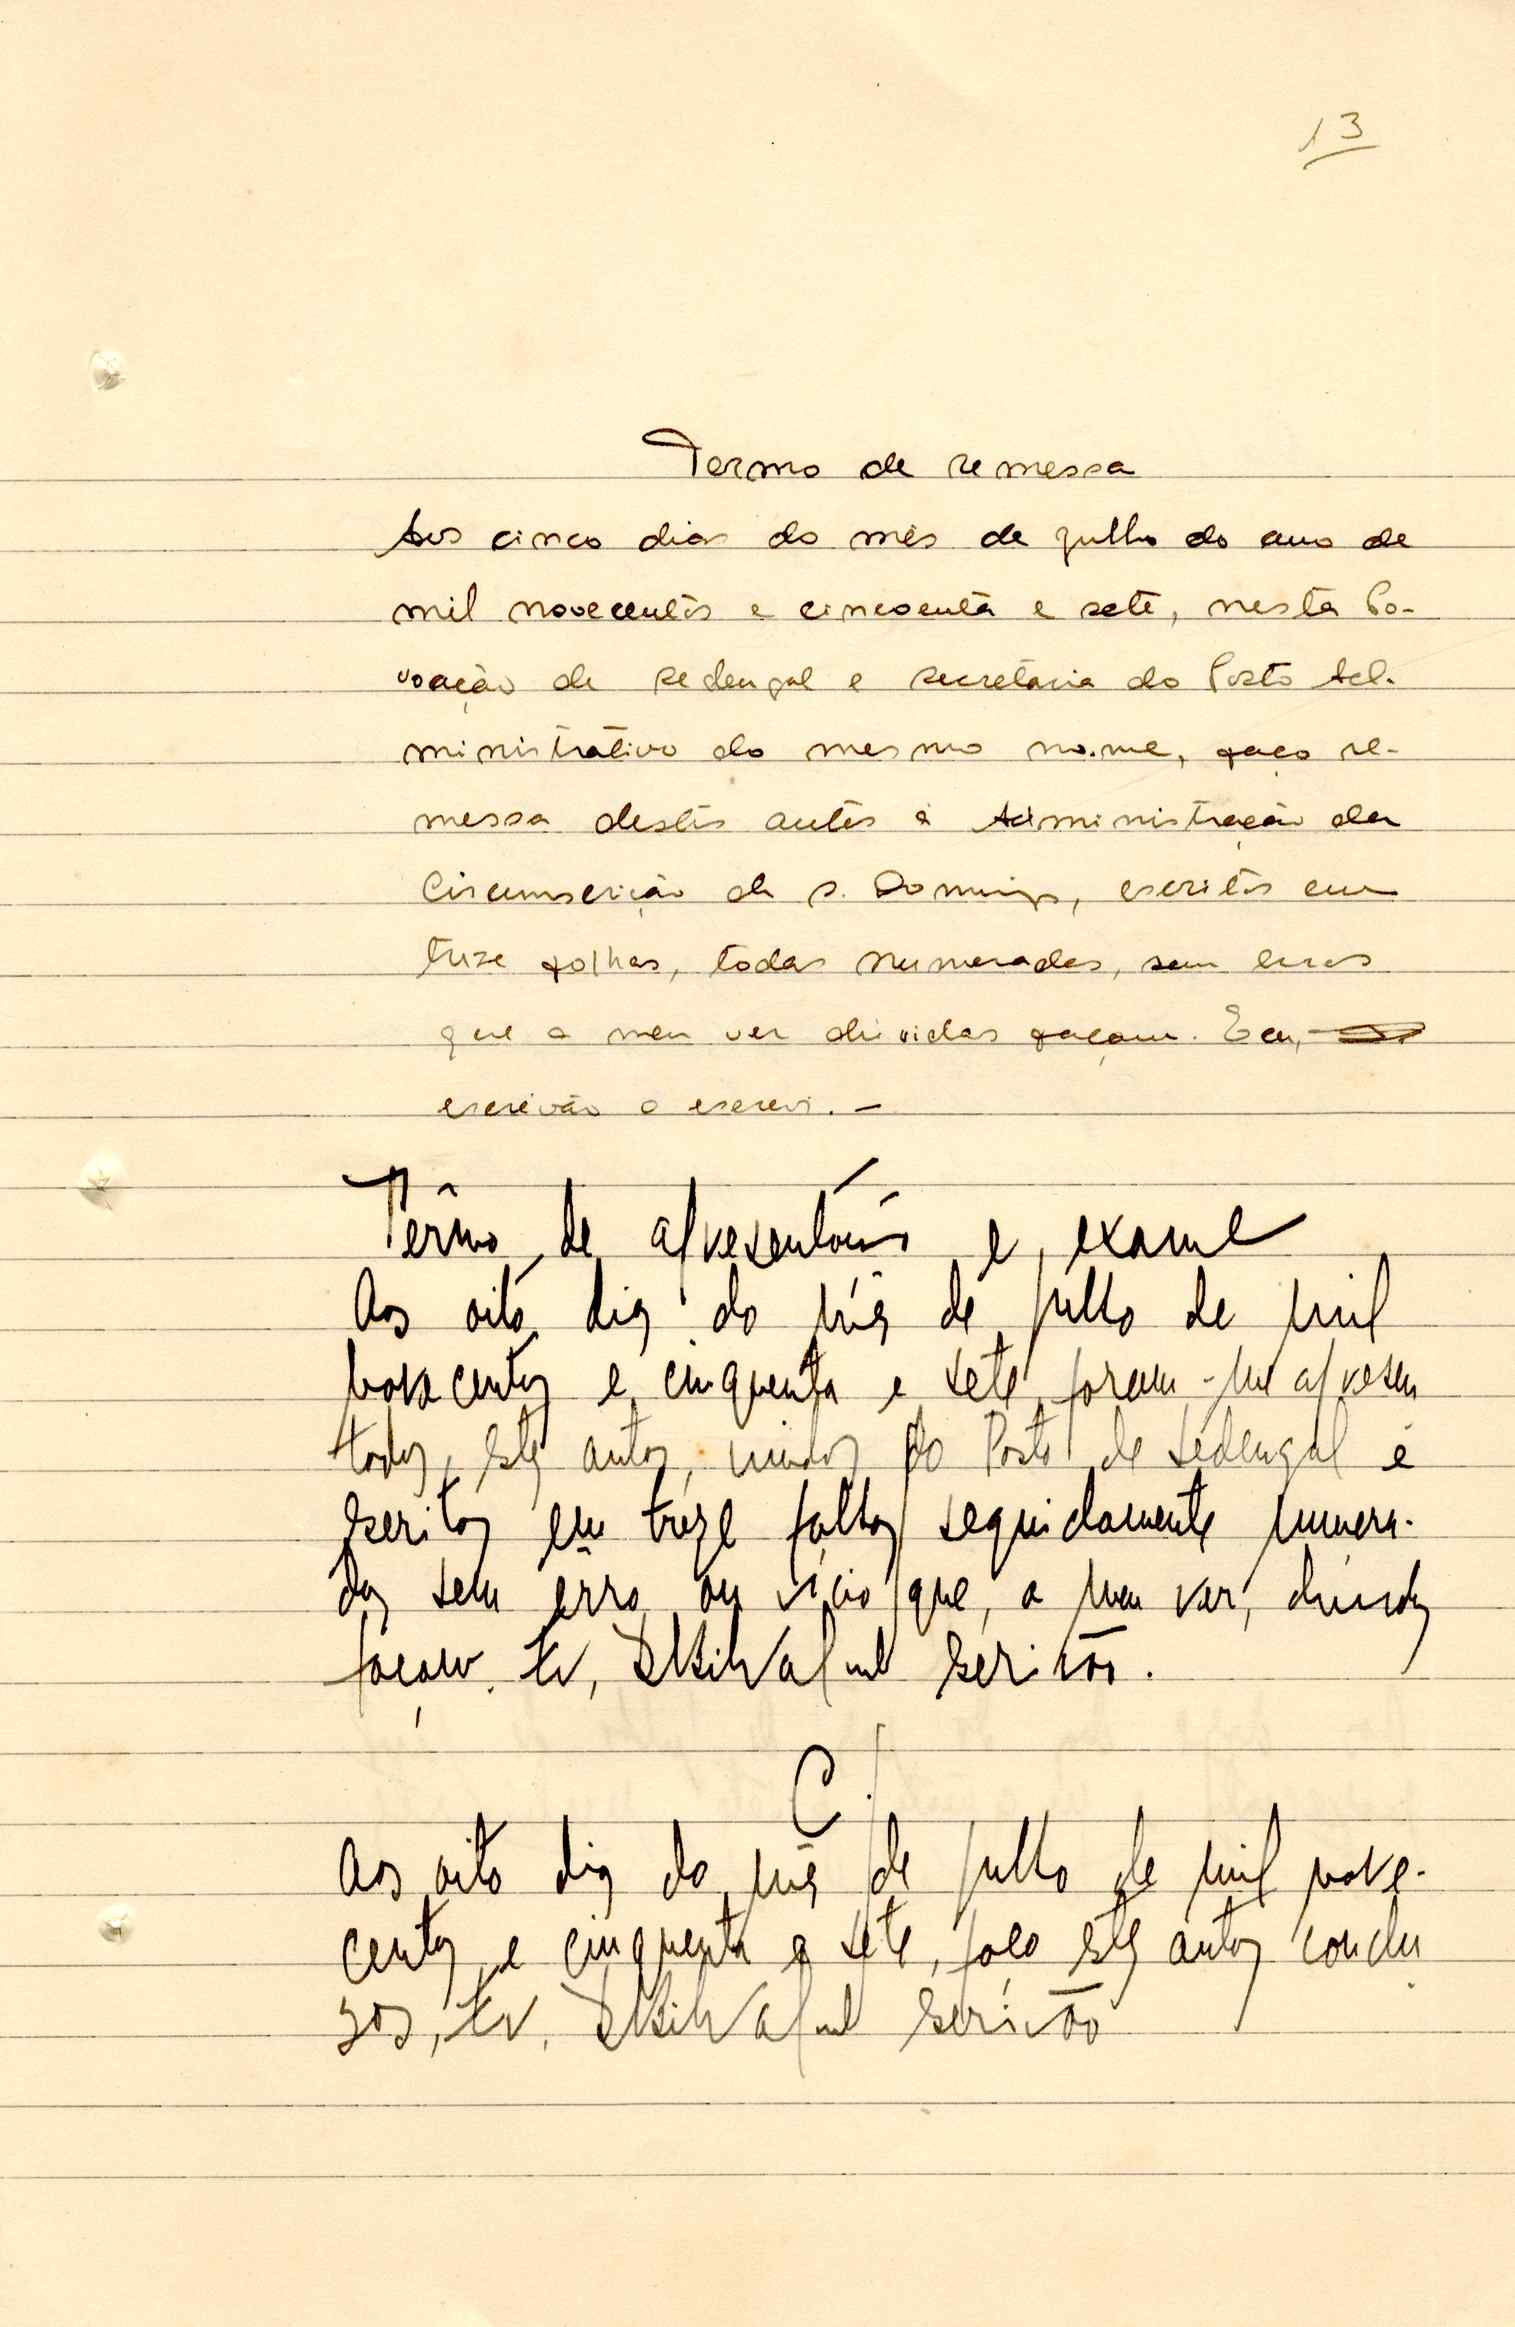 13
Termo de remessa
Aos cinco dias do mês de julho do ano de
mil novecentos e cincoenta e sete, nesta Po-
voação de Sedengal e secretaria do Posto Ad-
ministrativo do mesmo nome, faço re-
messa destes autos à Administração da
Circunscrição de S. Domingos, escritos em
treze folhas, todas numeradas, sem erros
que a meu ver dúvidas façam. Eu,
escrivão o escrevi. -
Têrmo de apresentação e exame
Aos oito dias do mês de julho de mil
novecentos e cinquenta e sete foram-me apresen
tados, estes autos, vindos do Posto de Sedengal e
escritos em treze folhas seguidamente numera-
das sem êrro ou vício que, a meu ver, dúvidas
façam. Eu, escrivão.
C.
Aos oito dias do mês de julho de mil nove-
centos e cinquenta e sete, faço estes autos conclu
sos, Eu, escrivão